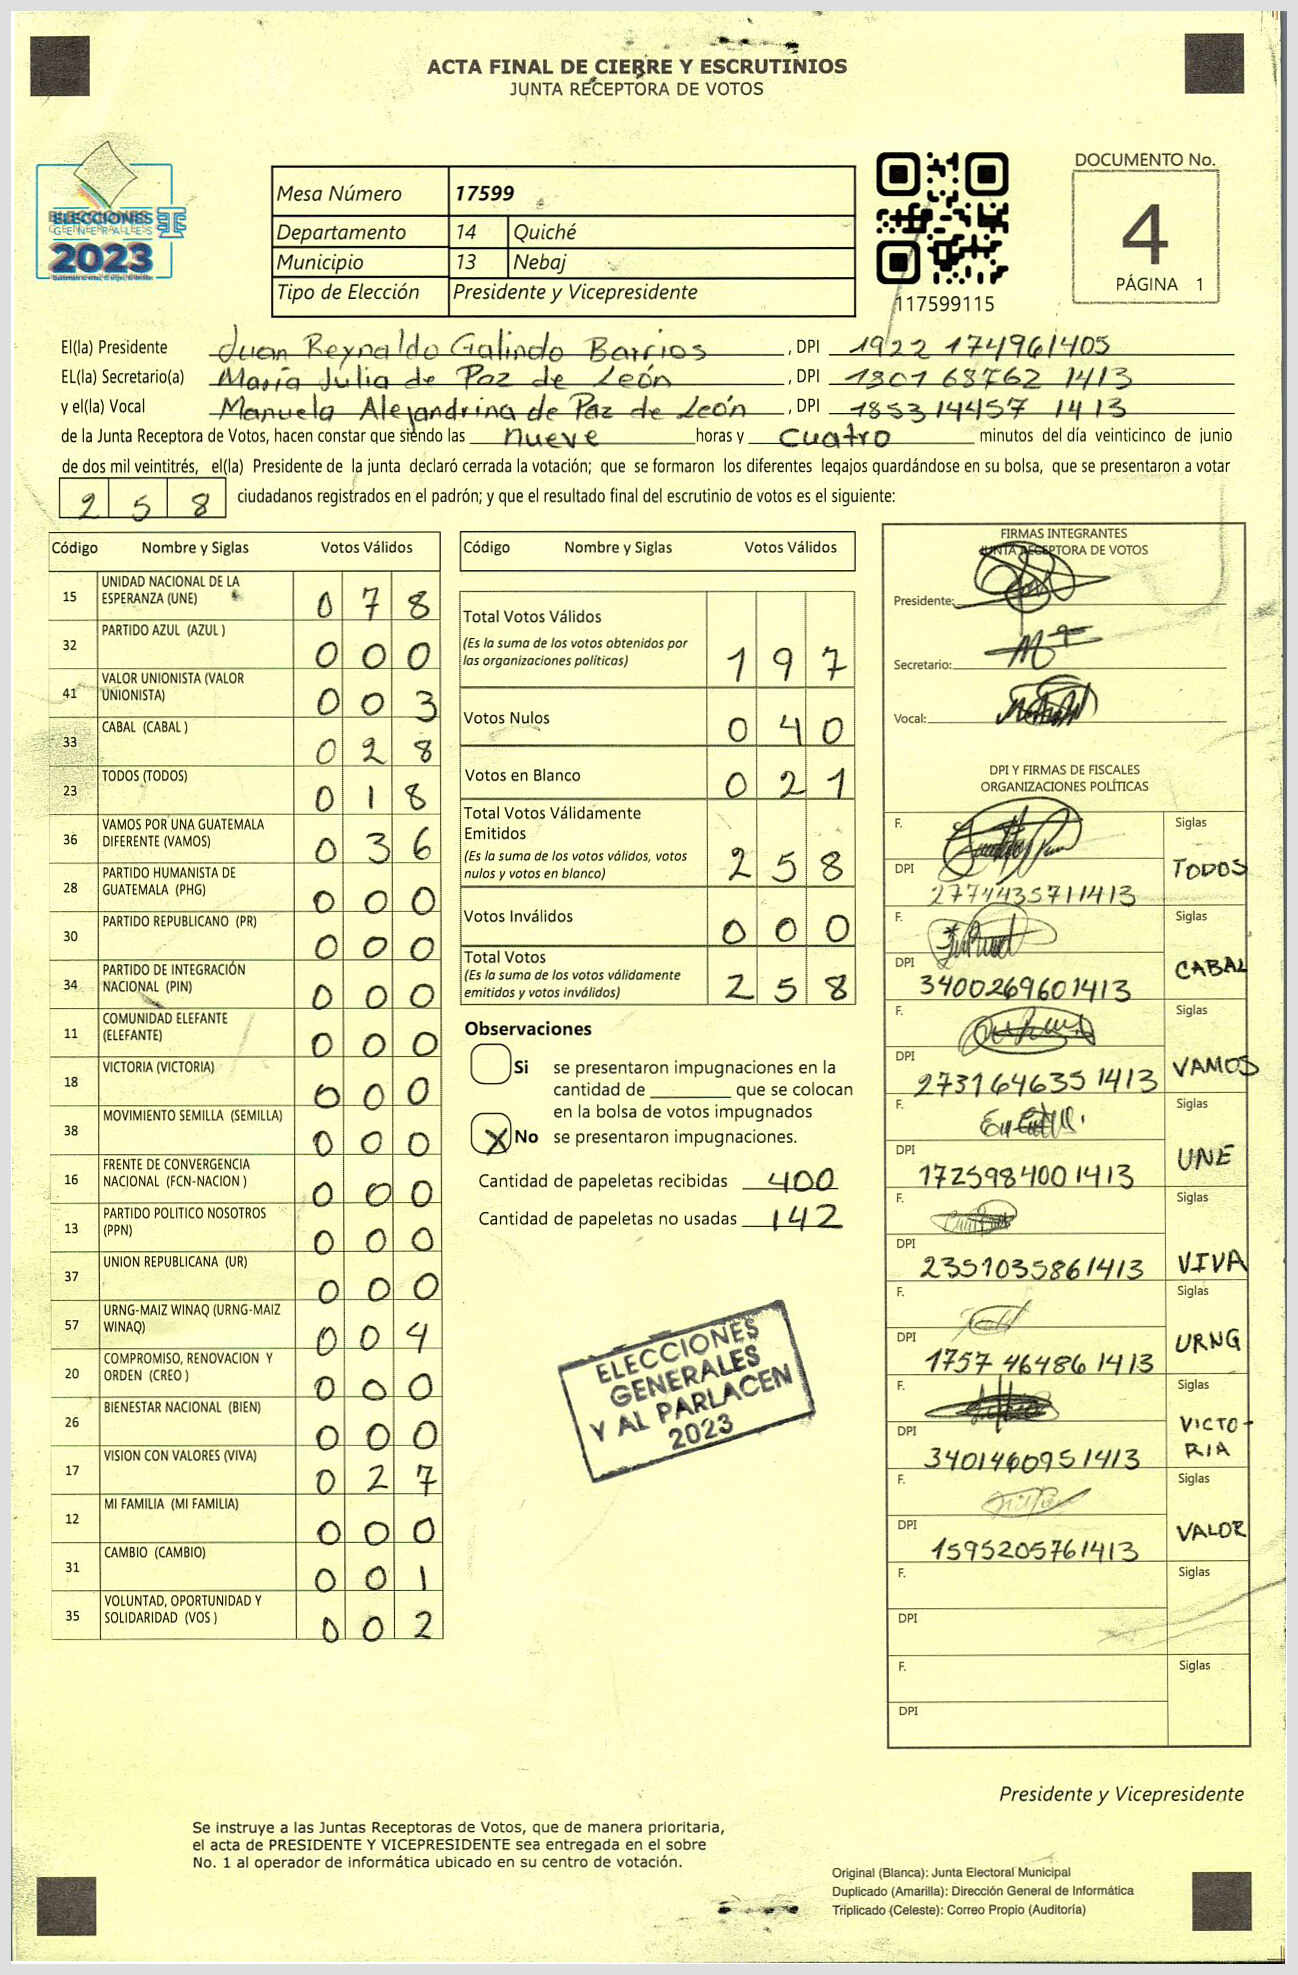 ACTA FINAL DE CIERRE Y ESCRUTINIOS
JUNTA RECEPTORA DE VOTOS
ELECCIONES
GENERALES
2023
Mesa Número 17599
Departamento 14 Quiché
Municipio 13 Nebaj
Tipo de Elección Presidente y Vicepresidente
117599115
DOCUMENTO No.
4
PÁGINA 1
El(la) Presidente Juan Reynaldo Galindo Barrios, DPI 1922 174961405
EL(la) Secretario(a) María Julia de Paz de León, DPI 1801 68762 1413
y el(la) Vocal Manuela Alejandrina de Paz de León, DPI 1853 14457 1413
de la Junta Receptora de Votos, hacen constar que siendo las nueve horas y cuatro minutos del día veinticinco de junio
de dos mil veintitrés, el(la) Presidente de la junta declaró cerrada la votación; que se formaron los diferentes legajos guardándose en su bolsa, que se presentaron a votar
258 ciudadanos registrados en el padrón; y que el resultado final del escrutinio de votos es el siguiente:
Código Nombre y Siglas Votos Válidos
15 UNIDAD NACIONAL DE LA
ESPERANZA (UNE) 078
32 PARTIDO AZUL (AZUL ) 000
41 VALOR UNIONISTA (VALOR
UNIONISTA) 003
33 CABAL (CABAL ) 028
23 TODOS (TODOS) 018
36 VAMOS POR UNA GUATEMALA
DIFERENTE (VAMOS) 036
28 PARTIDO HUMANISTA DE
GUATEMALA (PHG) 000
30 PARTIDO REPUBLICANO (PR) 000
34 PARTIDO DE INTEGRACIÓN
NACIONAL (PIN) 000
11 COMUNIDAD ELEFANTE
(ELEFANTE) 000
18 VICTORIA (VICTORIA) 000
38 MOVIMIENTO SEMILLA (SEMILLA) 000
16 FRENTE DE CONVERGENCIA
NACIONAL (FCN-NACION ) 000
13 PARTIDO POLITICO NOSOTROS
(PPN) 000
37 UNION REPUBLICANA (UR) 000
57 URNG-MAIZ WINAQ (URNG-MAIZ
WINAQ) 004
20 COMPROMISO, RENOVACION Y
ORDEN (CREO ) 000
26 BIENESTAR NACIONAL (BIEN) 000
17 VISION CON VALORES (VIVA) 027
12 MI FAMILIA (MI FAMILIA) 000
31 CAMBIO (CAMBIO) 001
35 VOLUNTAD, OPORTUNIDAD Y
SOLIDARIDAD (VOS ) 002
Código Nombre y Siglas Votos Válidos
Total Votos Válidos
(Es la suma de los votos obtenidos por
las organizaciones políticas) 197
Votos Nulos 040
Votos en Blanco 021
Total Votos Válidamente
Emitidos
(Es la suma de los votos válidos, votos
nulos y votos en blanco) 258
Votos Inválidos 000
Total Votos
(Es la suma de los votos válidamente
emitidos y votos inválidos) 258
Observaciones
Si se presentaron impugnaciones en la
cantidad de ________ que se colocan
en la bolsa de votos impugnados
X No se presentaron impugnaciones.
Cantidad de papeletas recibidas 400
Cantidad de papeletas no usadas 142
ELECCIONES
GENERALES
Y AL PARLACEN
2023
FIRMAS INTEGRANTES
JUNTA RECEPTORA DE VOTOS
Presidente:
Secretario:
Vocal:
DPI Y FIRMAS DE FISCALES
ORGANIZACIONES POLÍTICAS
F. Siglas
DPI 2774435711413 TODOS
F. Siglas
DPI 3400269601413 CABAL
F. Siglas
DPI 2731646351413 VAMOS
F. Siglas
DPI 1725984001413 UNE
F. Siglas
DPI 2351035861413 VIVA
F. Siglas
DPI 1757 46486 1413 URNG
F. Siglas
DPI 3401460951413 VICTO-
RIA
F. Siglas
DPI 1595205761413 VALOR
F. Siglas
DPI
F. Siglas
DPI
Presidente y Vicepresidente
Se instruye a las Juntas Receptoras de Votos, que de manera prioritaria,
el acta de PRESIDENTE Y VICEPRESIDENTE sea entregada en el sobre
No. 1 al operador de informática ubicado en su centro de votación.
Original (Blanca): Junta Electoral Municipal
Duplicado (Amarilla): Dirección General de Informática
Triplicado (Celeste): Correo Propio (Auditoría)